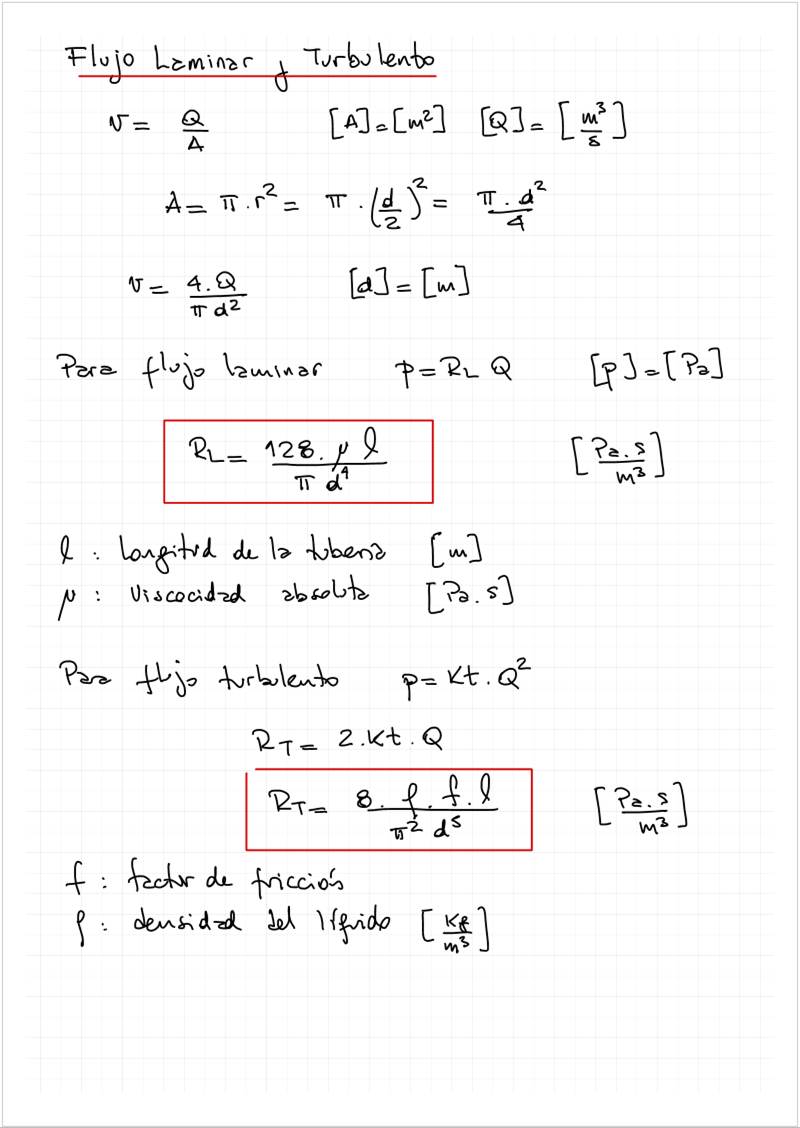 Flujo Laminar y Turbulento
v = Q/A [A] = [m²] [Q] = [m³/s]
A = π . r² = π . (d/2)² = π . d²/4
v = 4.Q/π d² [d] = [m]
Para flujo laminar p = RL Q [p] = [Pa]
RL = 128. μ l/π d⁴ [Pa.s/m³]
l : longitud de la tuberia [m]
μ : Viscocidad absoluta [Pa.s]
Para flujo turbulento p = Kt . Q²
RT = 2.Kt . Q
RT = 8. ρ. f. l/π² d⁵ [Pa.s/m³]
f : factor de fricción
ρ : densidad del líquido [Kg/m³]